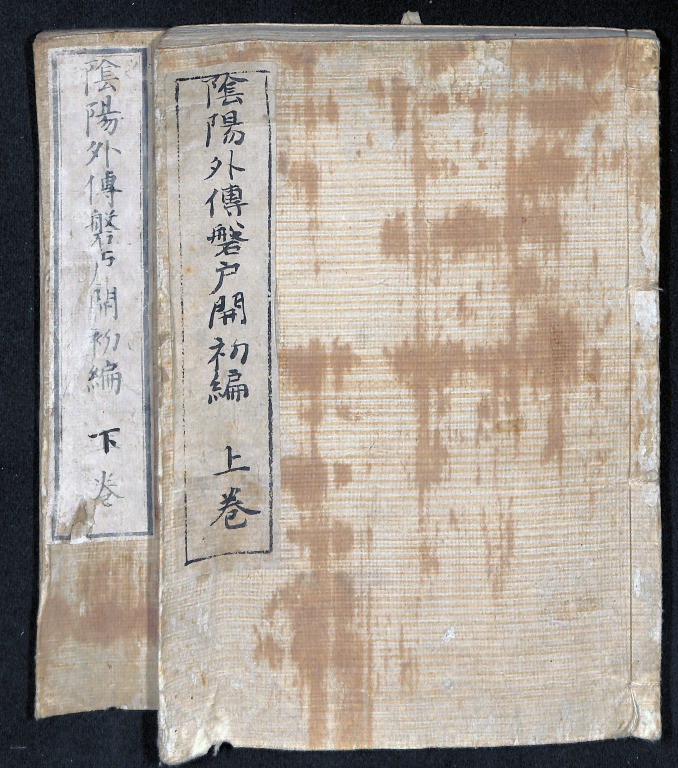 陰陽外傳磐戸開初編 上巻
陰陽外傳磐戸開初編 下巻